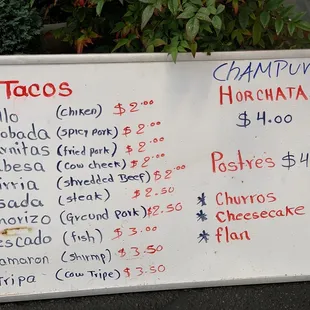 Tacos
llo (chiken) $2.00
obada (spicy pork) $2.00
rnitas (fried pork) $2.00
abesa (cow cheek) $2.00
irria (shredded Beef) $2.00
sada (steak) $2.50
horizo (ground pork) $2.50
escado (fish) $3.00
amaron (shrimp) $3.50
Tripa (cow Tripe) $3.50
CHAMPUR
HORCHATA
$4.00
Postres $4
* Churros
* Cheesecake
* flan